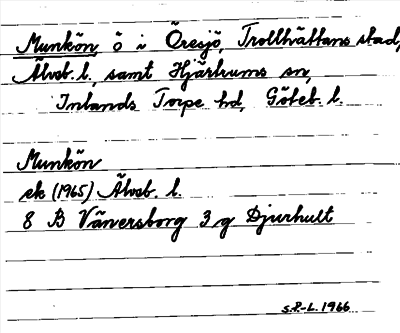 Munkön, ö i Öresjö, Trollhättans stad,
Älvsb. l., samt Hjärtums sn,
Inlands Torpe hd, Göteb. l.
Munkön
ek (1965) Älvsb. l.
8 B Vänersborg 3 g Djurhult
S.P.-L. 1966